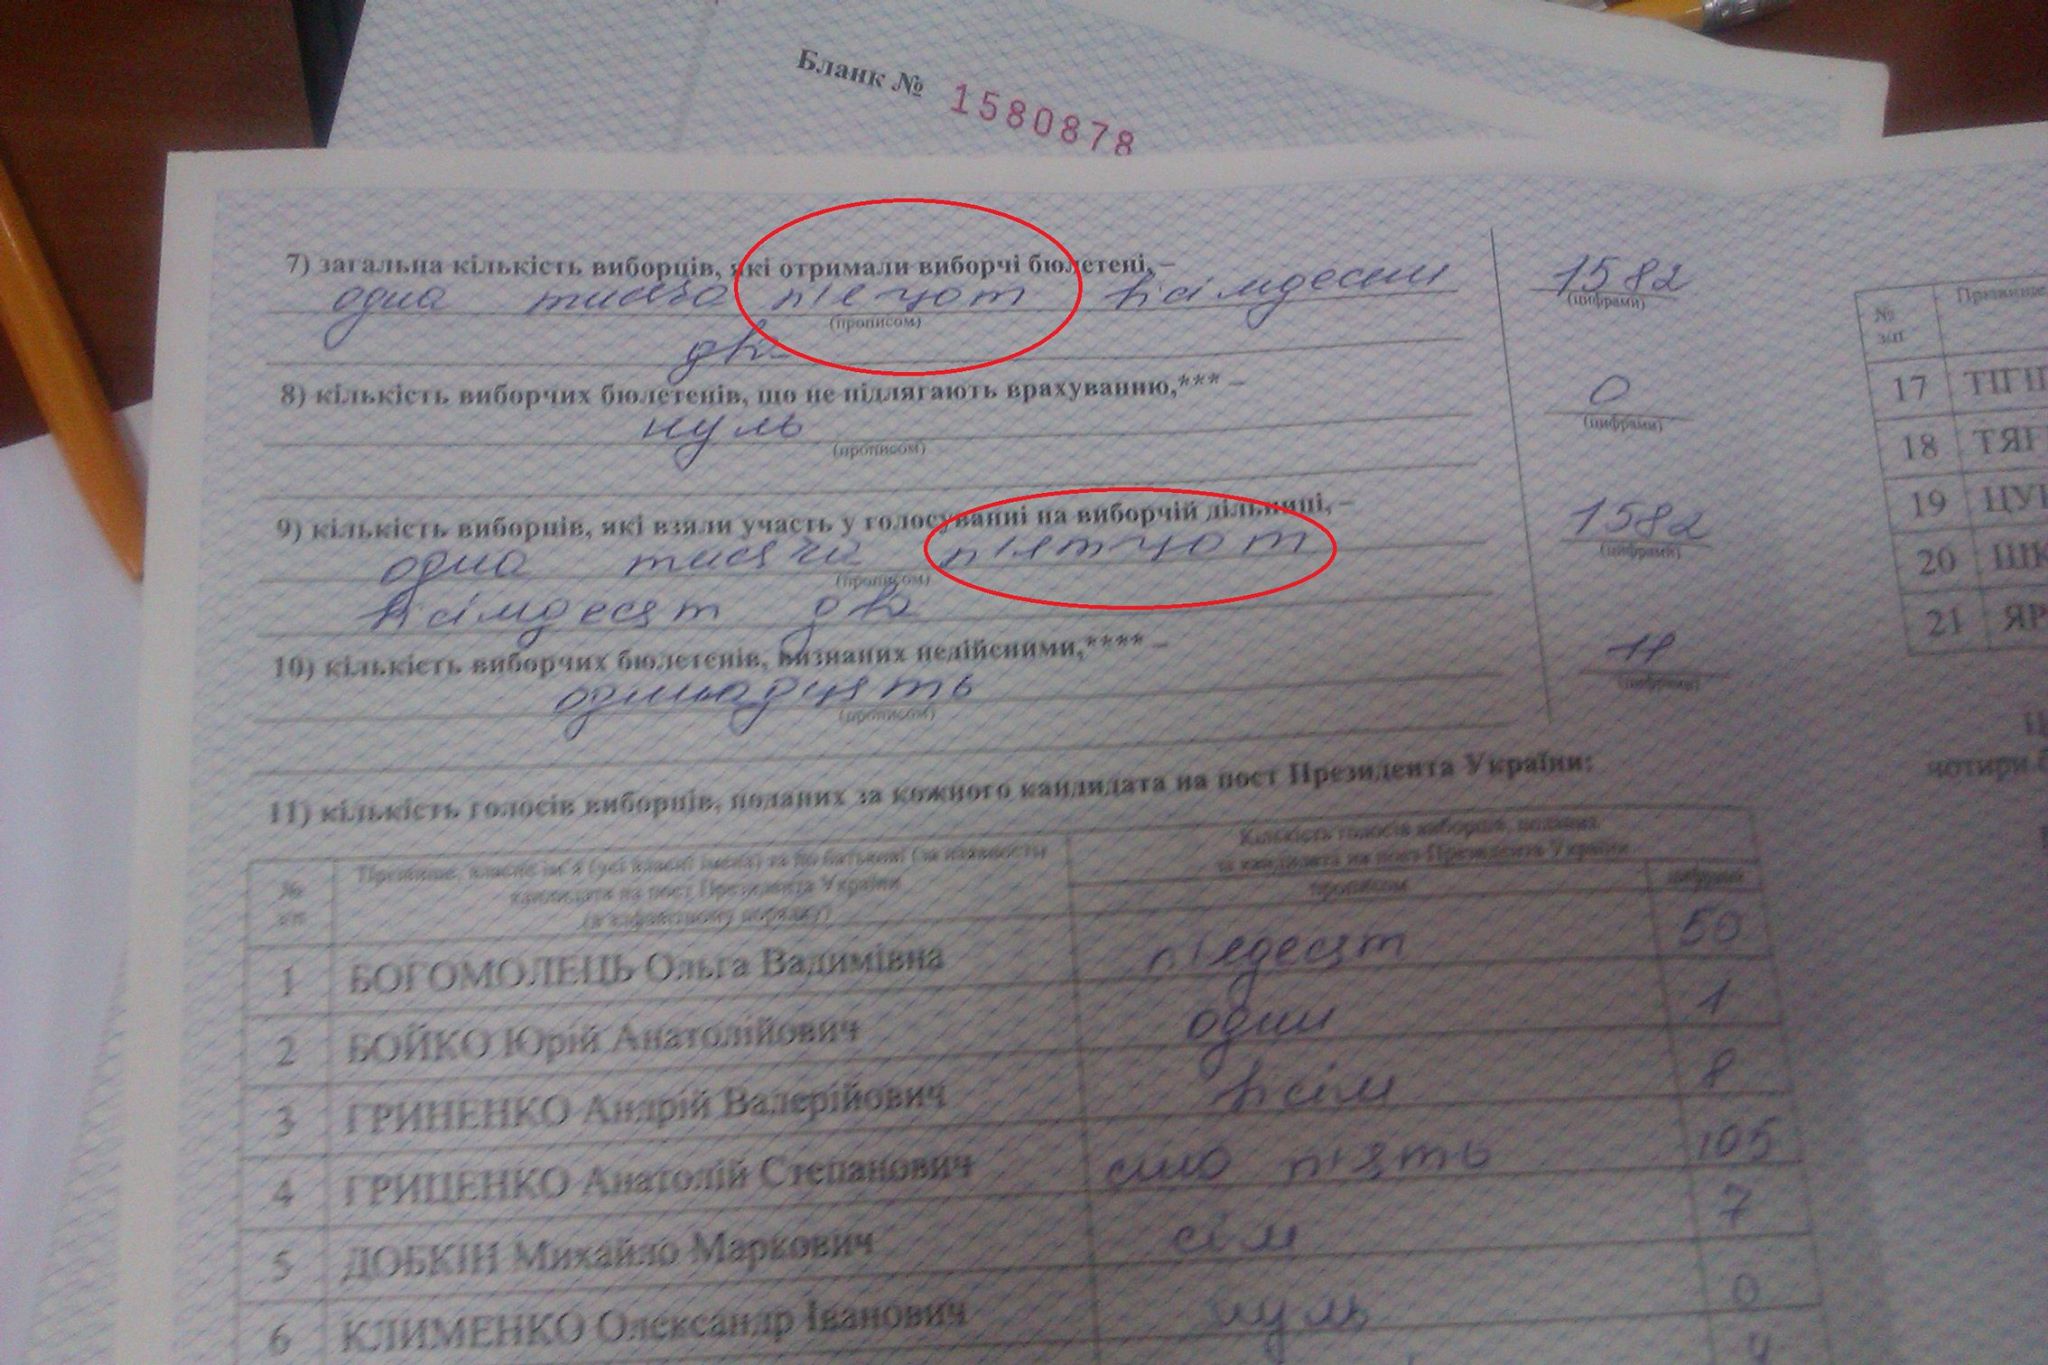 Бланк № 1580878
7) загальна кількість виборців, які отримали виборчі бюлетені, –
одна тисяча п'єцот вісімдесят 1582
(прописом) (цифрами)
дві
8) кількість виборчих бюлетенів, що не підлягають врахуванню,*** –
нуль 0
(прописом) (цифрами)
9) кількість виборців, які взяли участь у голосуванні на виборчій дільниці, –
одна тисяча п'ятцот 1582
(прописом) (цифрами)
вісімдесят дві
10) кількість виборчих бюлетенів, визнаних недійсними,**** –
одинадцять 11
(прописом) (цифрами)
11) кількість голосів виборців, поданих за кожного кандидата на пост Президента України:
№ з/п
Прізвище, власне ім'я (усі власні імена) та по батькові (за наявності)
кандидата на пост Президента України
(в алфавітному порядку)
Кількість голосів виборців, поданих
за кандидата на пост Президента України
прописом цифрами
1 БОГОМОЛЕЦЬ Ольга Вадимівна п'єдесят 50
2 БОЙКО Юрій Анатолійович один 1
3 ГРИНЕНКО Андрій Валерійович вісім 8
4 ГРИЦЕНКО Анатолій Степанович сто п'ять 105
5 ДОБКІН Михайло Маркович сім 7
6 КЛИМЕНКО Олександр Іванович нуль 0
4
№ з/п Прізвище
17 ТІГІП
18 ТЯГ
19 ЦУ
20 ШК
21 ЯР
чотири